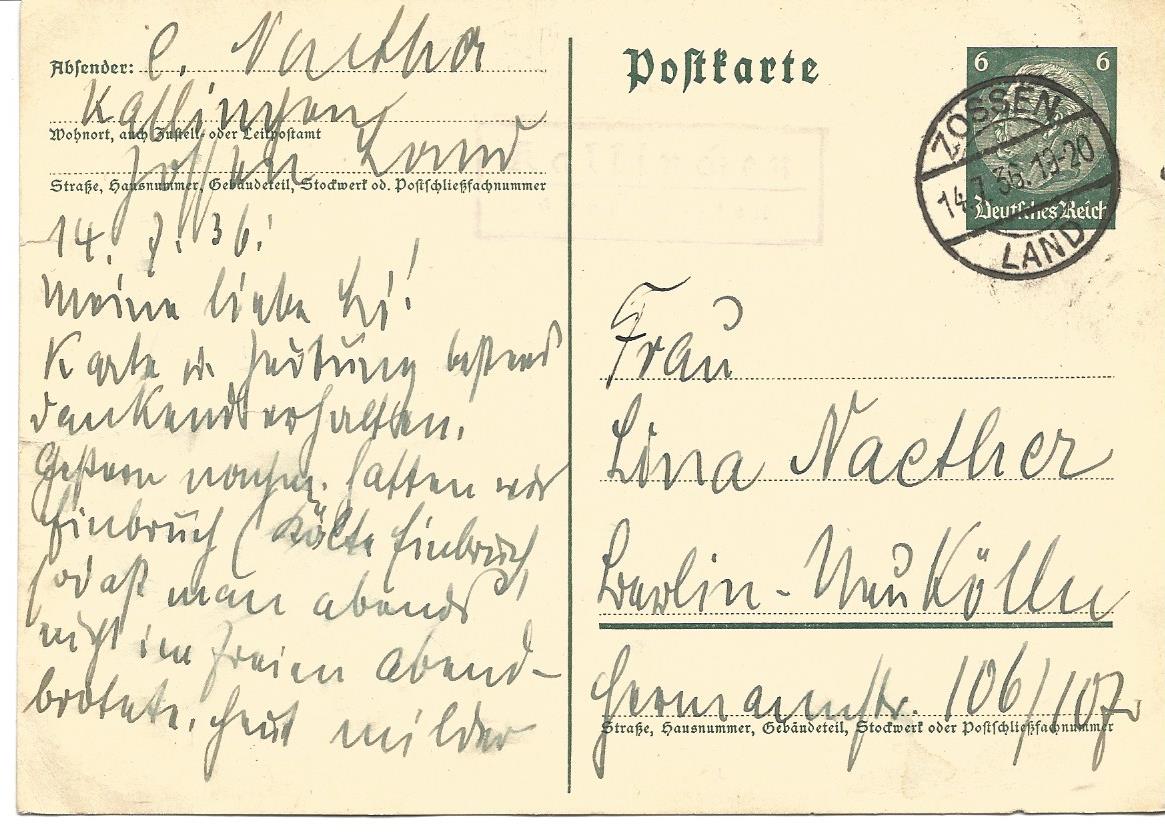 Absender: C. Naether
Wohnort, auch Zustell- oder Leitpostamt
Zossen Land
Straße, Hausnummer, Gebäudeteil, Stockwerk od. Postschließfachnummer
14. 7. 36.
Meine liebe Li!
Karte u. Zeitung bestens
dankend erhalten.
Gestern nachm. hatten wir
Einbruch (Kälte Einbruch,
sodaß man abends
nicht im Freien Abend-
brotete. Heut milder
Postkarte
6 6
Deutsches Reich
ZOSSEN
14.7.36.19-20
LAND
Frau
Lina Naether
Berlin-Neukölln
Hermannstr. 106/107
Straße, Hausnummer, Gebäudeteil, Stockwerk oder Postschließfachnummer